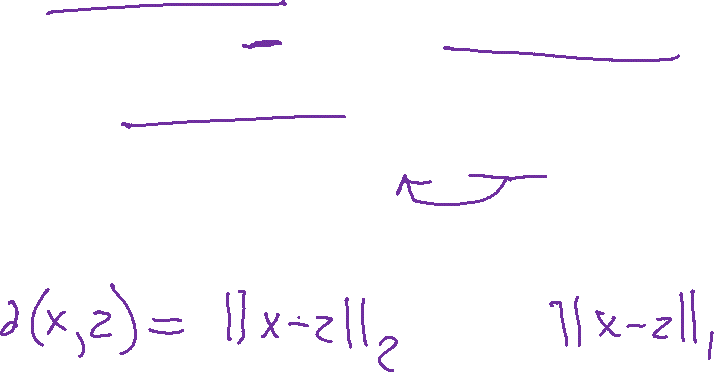 d(x,z) = ||x-z||₂ ||x-z||₁